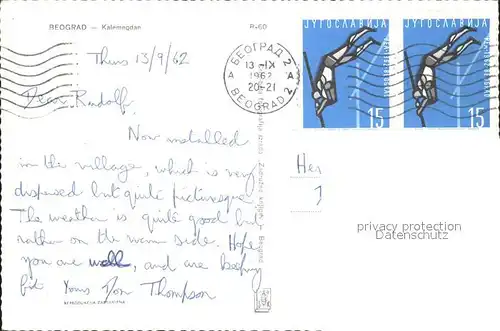 BEOGRAD — Kalemegdan
P-60
Thurs 13/9/62
Dear Rudolf,
Now installed
in the village, which is very
dispersed but quite picturesque.
The weather is quite good but
rather on the warm side. Hope
you are well, and are keeping
fit Yours Don Thompson
БЕОГРАД 2
A A
13-IX
1962
20-21
BEOGRAD 2
ЈУГОСЛАВИЈА
15
ЈУГОСЛАВИЈА
15
Her
privacy protection
Datenschutz